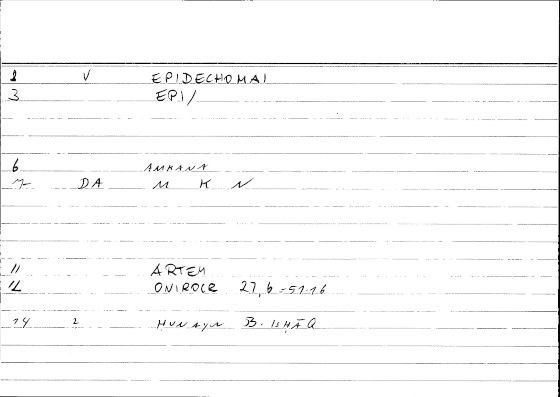 1 V EPIDECHOMAI
3 EPI/
6 AMKANA
7 DA M K N
11 ARTEM
12 ONIROCR 27,6 = 51.16
14 2 ḤUNAYN B. ISḤĀQ